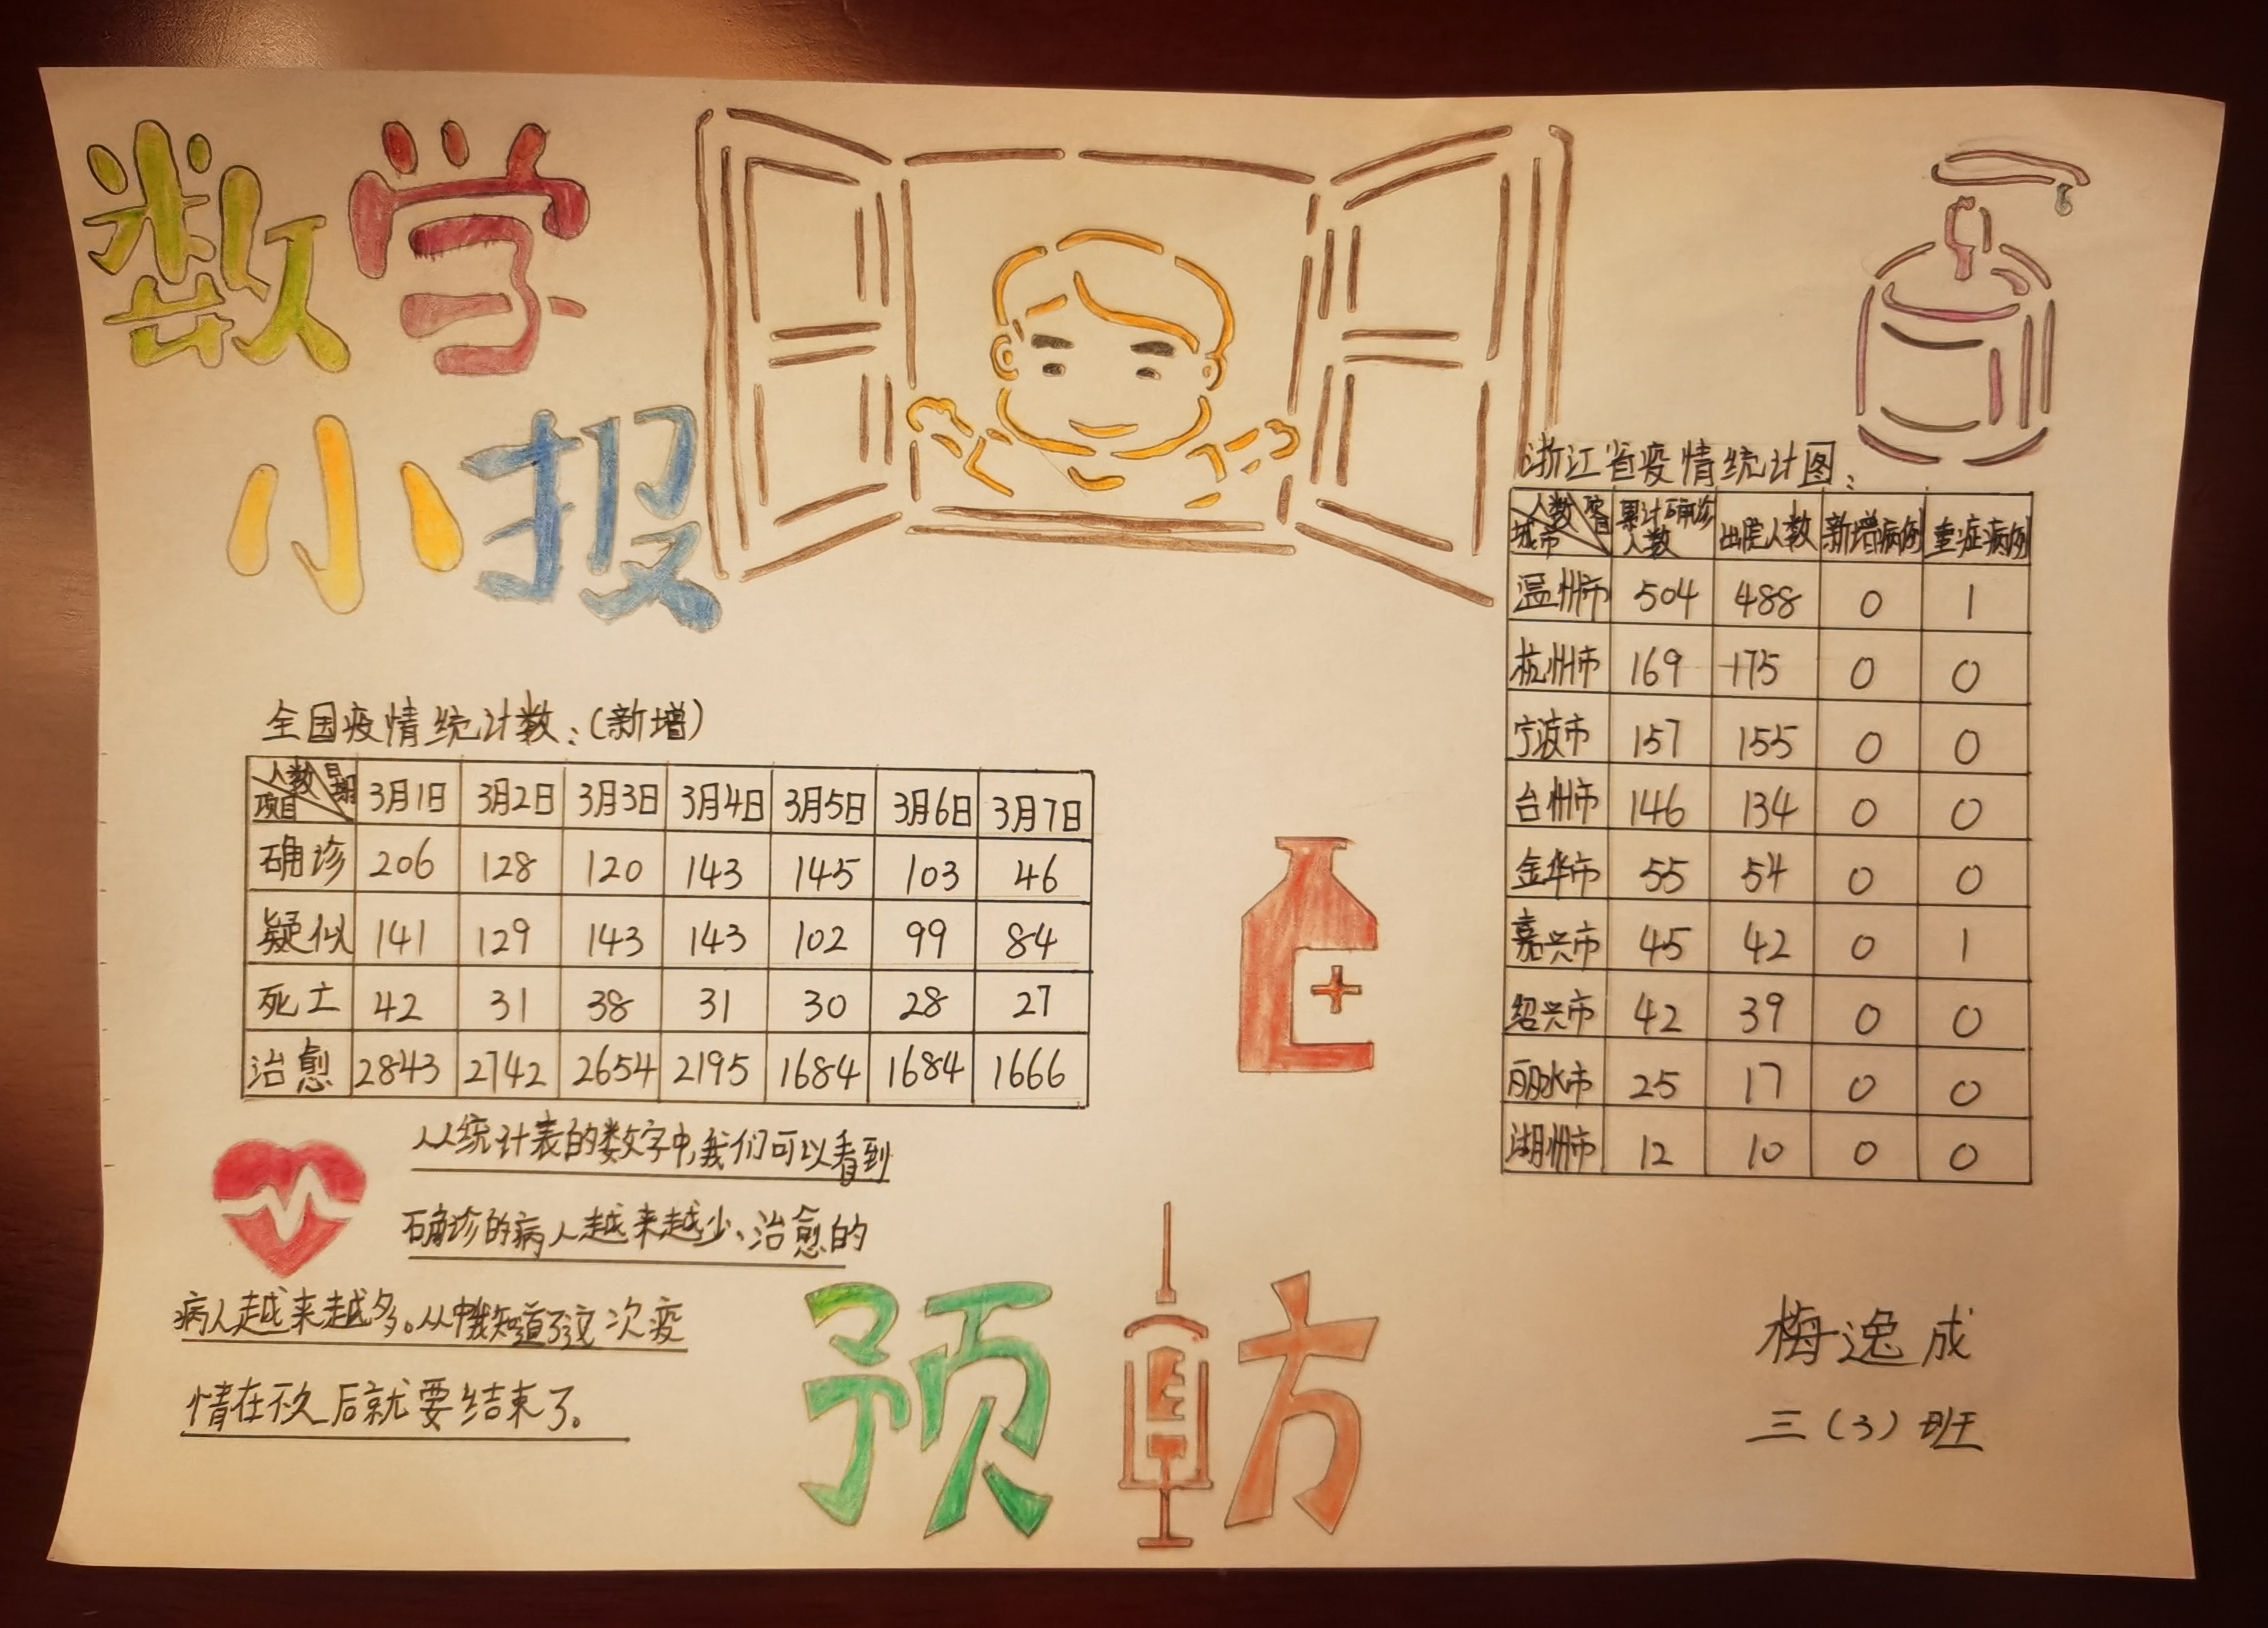 数学
小报
浙江省疫情统计图：
人数 项目 城市 累计确诊人数 出院人数 新增病例 重症病例
温州市 504 488 0 1
杭州市 169 175 0 0
宁波市 157 155 0 0
台州市 146 134 0 0
金华市 55 54 0 0
嘉兴市 45 42 0 1
绍兴市 42 39 0 0
丽水市 25 17 0 0
湖州市 12 10 0 0
全国疫情统计数：(新增)
人数 日期 项目 3月1日 3月2日 3月3日 3月4日 3月5日 3月6日 3月7日
确诊 206 128 120 143 145 103 46
疑似 141 129 143 143 102 99 84
死亡 42 31 38 31 30 28 27
治愈 2843 2742 2654 2195 1684 1684 1666
从统计表的数字中,我们可以看到
确诊的病人越来越少、治愈的
病人越来越多。从中我知道了这次疫
情在不久后就要结束了。
预防
梅逸成
三(3)班